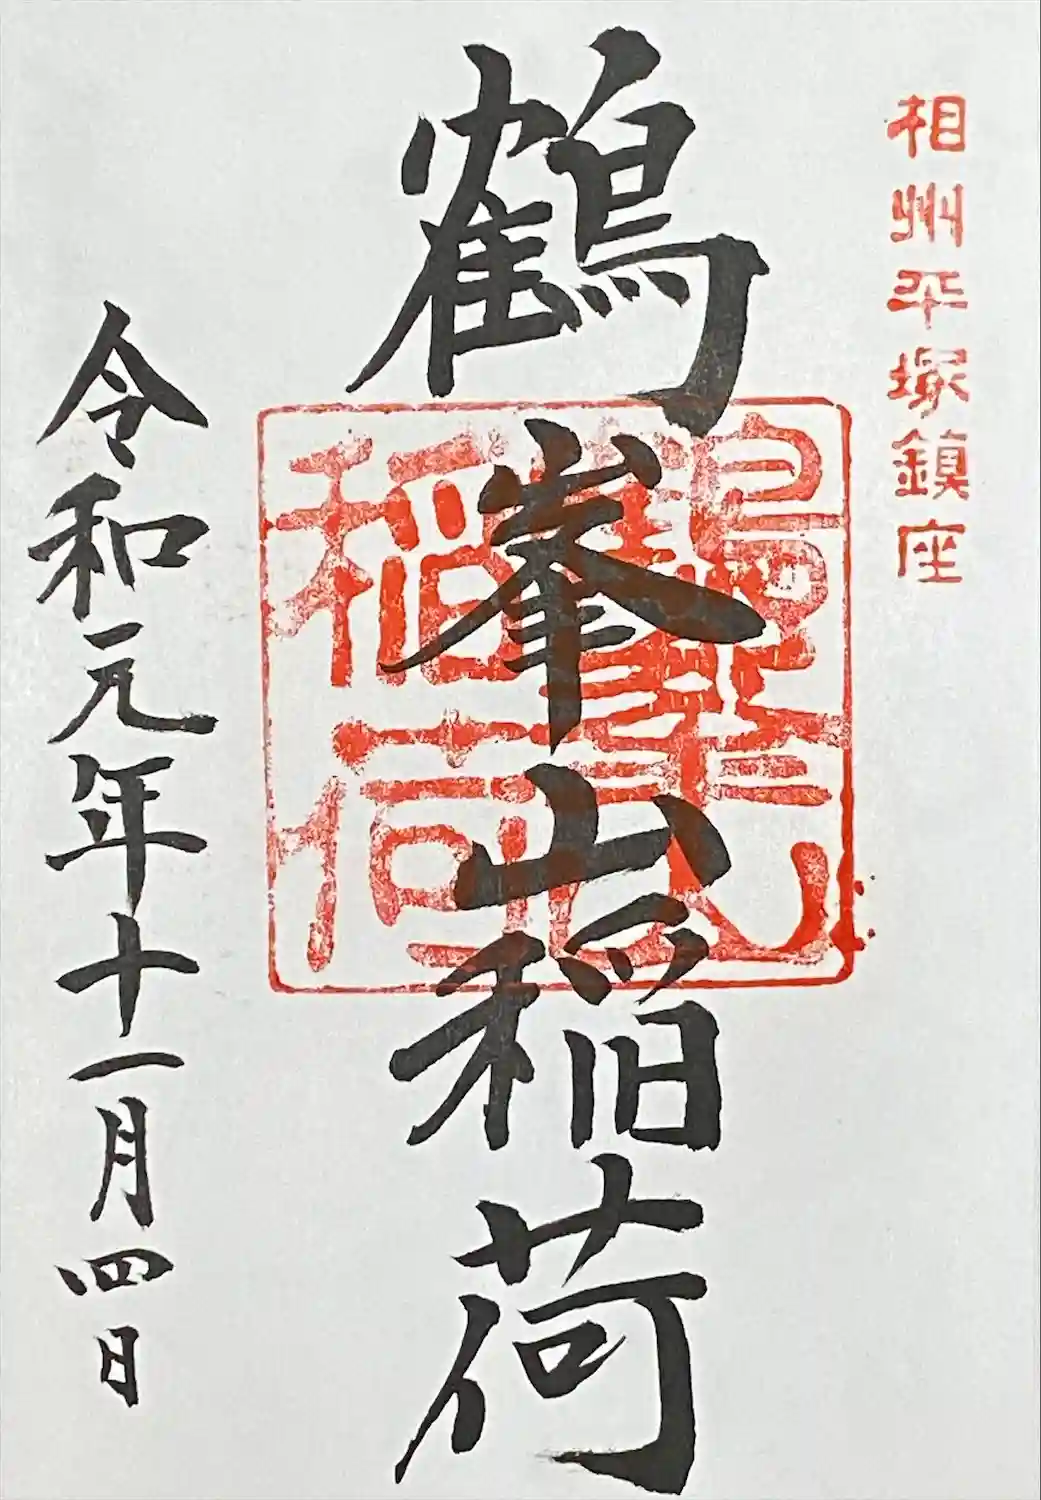 相州平塚鎮座
鶴峯山稲荷
鶴峯山
稲荷
令和元年十一月四日